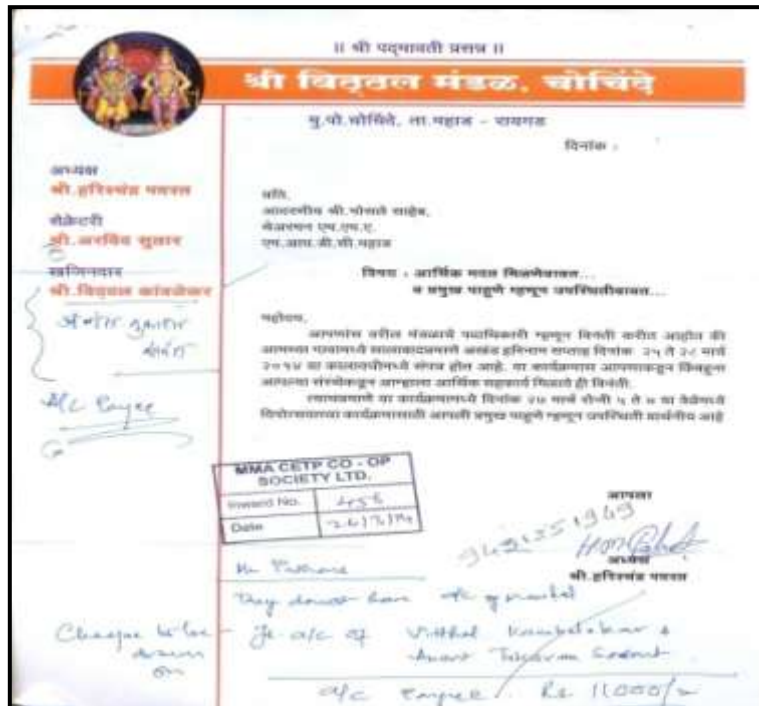 ॥ श्री पद्मावती प्रसन्न ॥
श्री विठ्ठल मंडळ, चोचिंदे
मु.पो.चोचिंदे, ता.महाड - रायगड
दिनांक :
अध्यक्ष
श्री.हरिश्चंद्र पवरत
सेक्रेटरी
श्री.अरविंद सुतार
खजिनदार
श्री.विठ्ठल कांबळेकर
A/c Payee
प्रति,
आदरणीय श्री.भोसले साहेब,
चेअरमन एम.एम.ए.
एम.आय.डी.सी महाड
विषय : आर्थिक मदत मिळणेबाबत...
व प्रमुख पाहुणे म्हणून उपस्थितीबाबत...
महोदय,
आपणांस वरील मंडळाचे पदाधिकारी म्हणून विनंती करीत आहोत की
आमच्या गावामध्ये सालाबादप्रमाणे अखंड हरिनाम सप्ताह दिनांक २५ ते २८ मार्च
२०१४ या कालावधीमध्ये संपन्न होत आहे. या कार्यक्रमास आपणाकडून किंबहुना
आपल्या संस्थेकडून आम्हाला आर्थिक सहकार्य मिळावे ही विनंती.
त्याचप्रमाणे या कार्यक्रमामध्ये दिनांक २७ मार्च रोजी ५ ते ७ या वेळेमध्ये
कार्यक्रमासाठी आपली प्रमुख पाहुणे म्हणून उपस्थिती प्रार्थनीय आहे
MMA CETP CO - OP
SOCIETY LTD.
Inward No. 455
Date 26/3/14
आपला
अध्यक्ष
श्री.हरिश्चंद्र पवरत
They doesnt have a/c of mandal
Cheque to be drawn on - Jt a/c of Vitthal Kambalekar &
Anant Tukaram Sawant
a/c payee Rs 11000/=